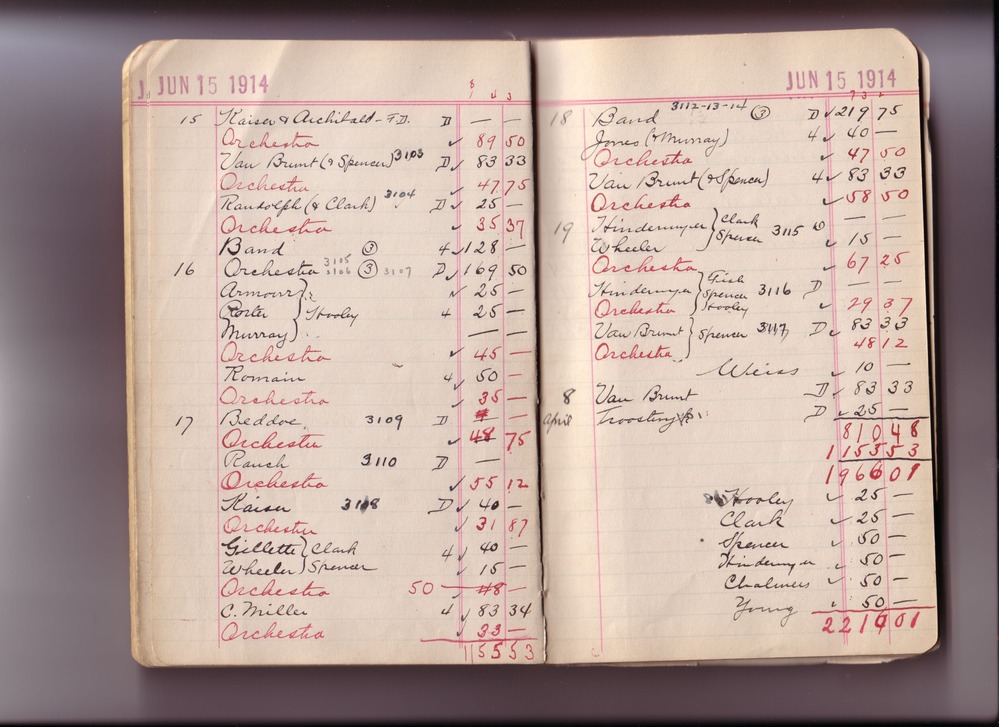 JUN 15 1914
15 Kaiser & Archibald - T.D. D — —
Orchestra ✓ 89 50
Van Brunt (& Spencer) 3103 D ✓ 83 33
Orchestra ✓ 47 75
Randolph (& Clark) 3104 D ✓ 25 —
Orchestra ✓ 35 37
Band ③ 4 ✓ 128 —
16 Orchestra 3105 3106 ③ 3107 D ✓ 169 50
Armour ✓ 25 —
Porter } Hooley 4 25 —
Murray — —
Orchestra ✓ 45 —
Romain 4 ✓ 50 —
Orchestra ✓ 35 —
17 Beddoe 3109 D —
Orchestra ✓ 48 75
Rauch 3110 D —
Orchestra ✓ 55 12
Kaiser 3108 D ✓ 40 —
Orchestra ✓ 31 87
Gillette } Clark 4 ✓ 40 —
Wheeler } Spencer ✓ 15 —
Orchestra 50 — 48 —
C. Miller 4 ✓ 83 34
Orchestra ✓ 33 —
1155 53
JUN 15 1914
3112-13-14
18 Band ③ D ✓ 219 75
Jones (& Murray) 4 ✓ 40 —
Orchestra ✓ 47 50
Van Brunt (& Spencer) 4 ✓ 83 33
Orchestra ✓ 58 50
19 Hindermyer } Clark — —
Wheeler } Spencer 3115 ✓ 15 —
Orchestra ✓ 67 25
Hindermyer } Spencer 3116 D — —
Orchestra } Hooley ✓ 29 37
Van Brunt } Spencer 3117 D ✓ 83 33
Orchestra 48 12
Weiss ✓ 10 —
8 Van Brunt D ✓ 83 33
April D ✓ 25 —
810 48
1155 53
1966 01
Hooley ✓ 25 —
Clark ✓ 25 —
Spencer ✓ 50 —
Hindermyer ✓ 50 —
Chalmers ✓ 50 —
Young ✓ 50 —
2219 01